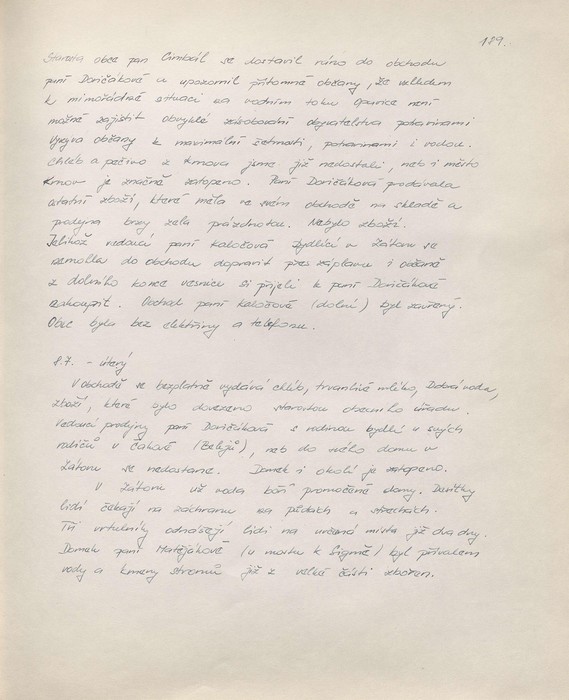 189.
Starosta obce pan Cimbál se dostavil ráno do obchodu
paní Doričákové a upozornil přítomné občany, že vzhledem
k mimořádné situaci na vodním toku Opavice není
možné zajistit obvyklé zásobování obyvatelstva potravinami
Vyzývá občany k maximální šetrnosti, potravinami i vodou.
Chléb a pečivo z Krnova jsme již nedostali, neb i město
Krnov je značně zatopeno. Paní Doričáková prodávala
ostatní zboží, které měla ve svém obchodě na skladě a
prodejna brzy zela prázdnotou. Nebylo zboží.
Jelikož vedoucí paní Kaločová bydlící v Zátoru se
nemohla do obchodu dopravit přes záplavu i občané
z dolního konce vesnice si přijeli k paní Doričákové
nakoupit. Obchod paní Kaločové (dolní) byl zavřený.
Obec byla bez elektřiny a telefonu.
8.7. - úterý
V obchodě se bezplatně vydává chléb, trvanlivé mléko, Dobrá voda,
zboží, které bylo dovezeno starostou obecního úřadu.
Vedoucí prodejny paní Doričáková s rodinou bydlí u svých
rodičů v Čakově, neb do svého domu v
Zátoru se nedostane. Domek i okolí je zatopeno.
V Zátoru už voda boří promočené domy. Desítky
lidí čekají na záchranu na půdách a střechách.
Tři vrtulníky odnášejí lidi na určená místa již dva dny.
Domek paní Matějákové (u mostu k Sigmě) byl přívalem
vody a kmeny stromů již z velké části zbořen.